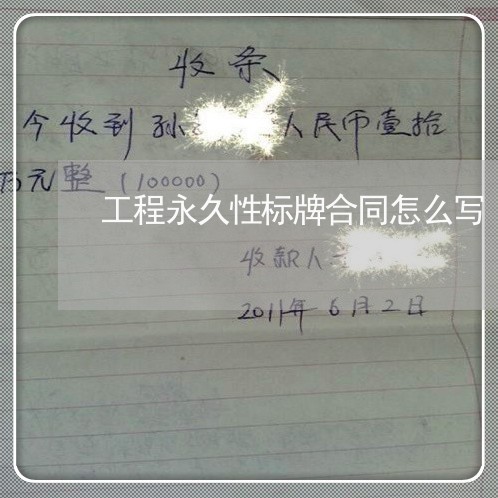 收条
今收到孙 人民币壹拾
万元整(100000)
工程永久性标牌合同怎么写
收款人
2011年6月2日